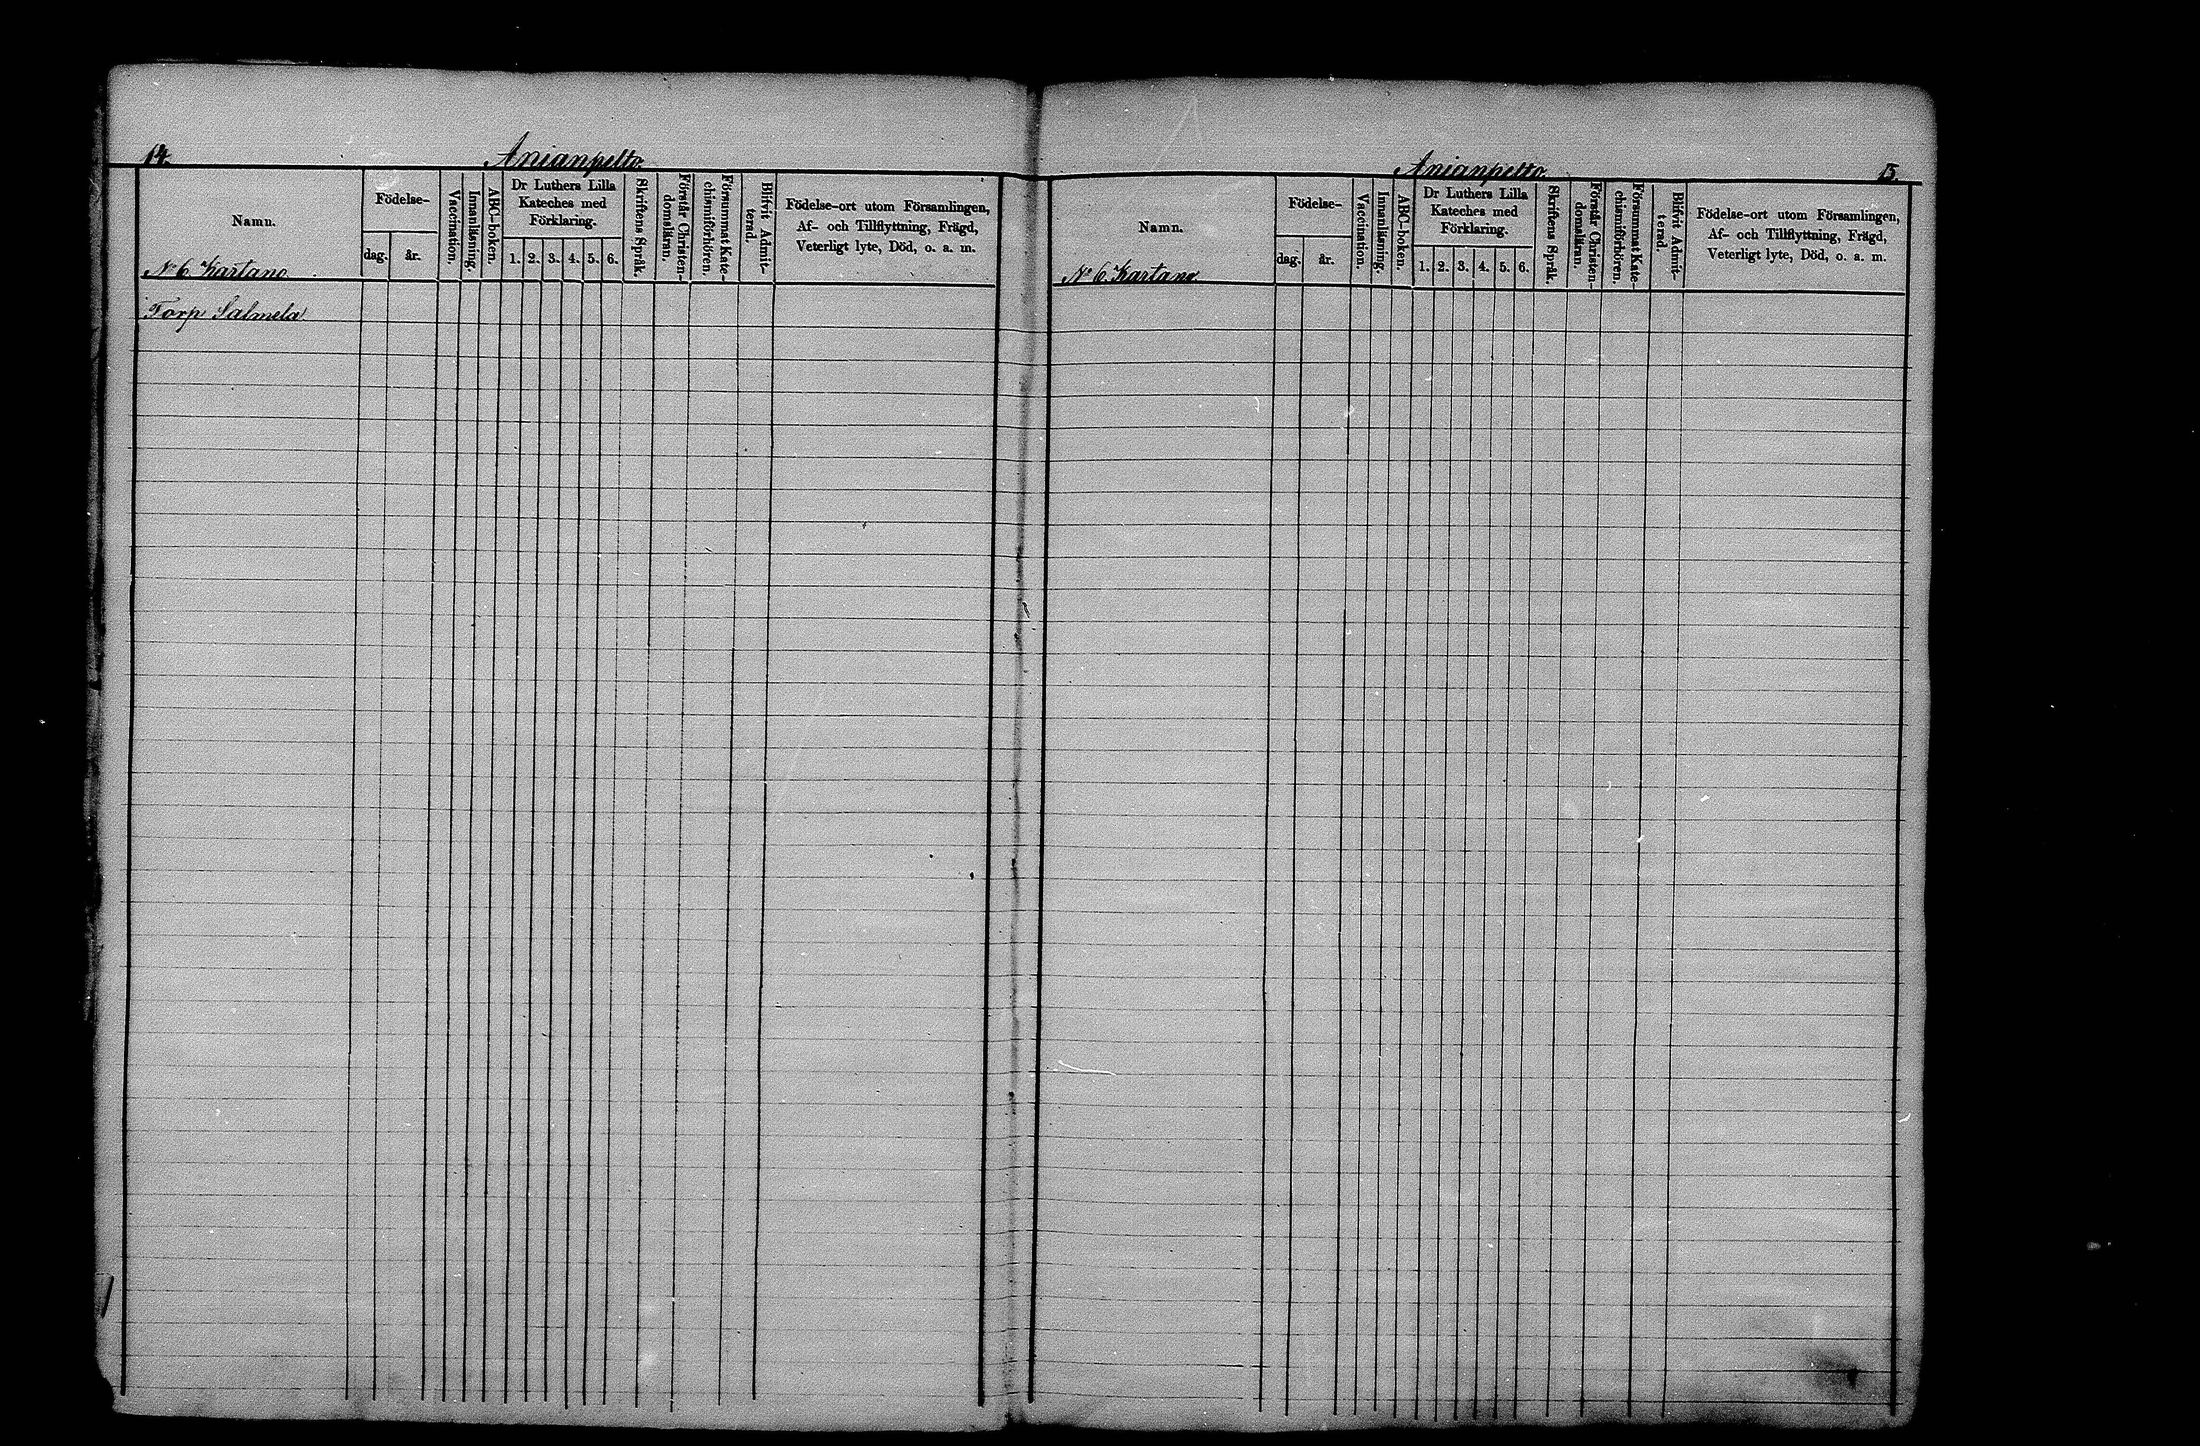 14.
Anianpelto
Namn.
Födelse-
dag.
år.
Vaccination.
Innanläsning.
ABC-boken.
Dr Luthers Lilla
Kateches med
Förklaring.
1. 2. 3. 4. 5. 6.
Skriftens Språk.
Förstår Christen-
domsläran.
Försummat Kate-
chismiförhören.
Blifvit Admit-
terad.
Födelse-ort utom Församlingen,
Af- och Tillflyttning, Frägd,
Veterligt lyte, Död, o. a. m.
No 6. Kartano
Torp Salmela
Anianpelto
15.
Namn.
Födelse-
dag.
år.
Vaccination.
Innanläsning.
ABC-boken.
Dr Luthers Lilla
Kateches med
Förklaring.
1. 2. 3. 4. 5. 6.
Skriftens Språk.
Förstår Christen-
domsläran.
Försummat Kate-
chismiförhören.
Blifvit Admit-
terad.
Födelse-ort utom Församlingen,
Af- och Tillflyttning, Frägd,
Veterligt lyte, Död, o. a. m.
No 6. Kartano